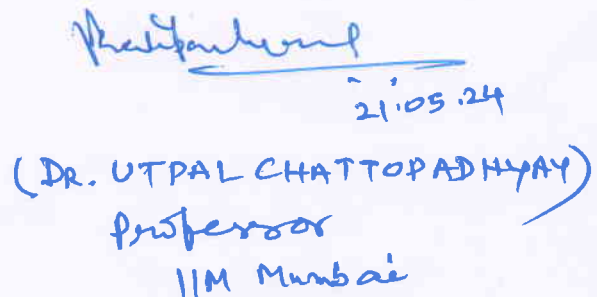 21.05.24
(DR. UTPAL CHATTOPADHYAY)
Professor
IIM Mumbai